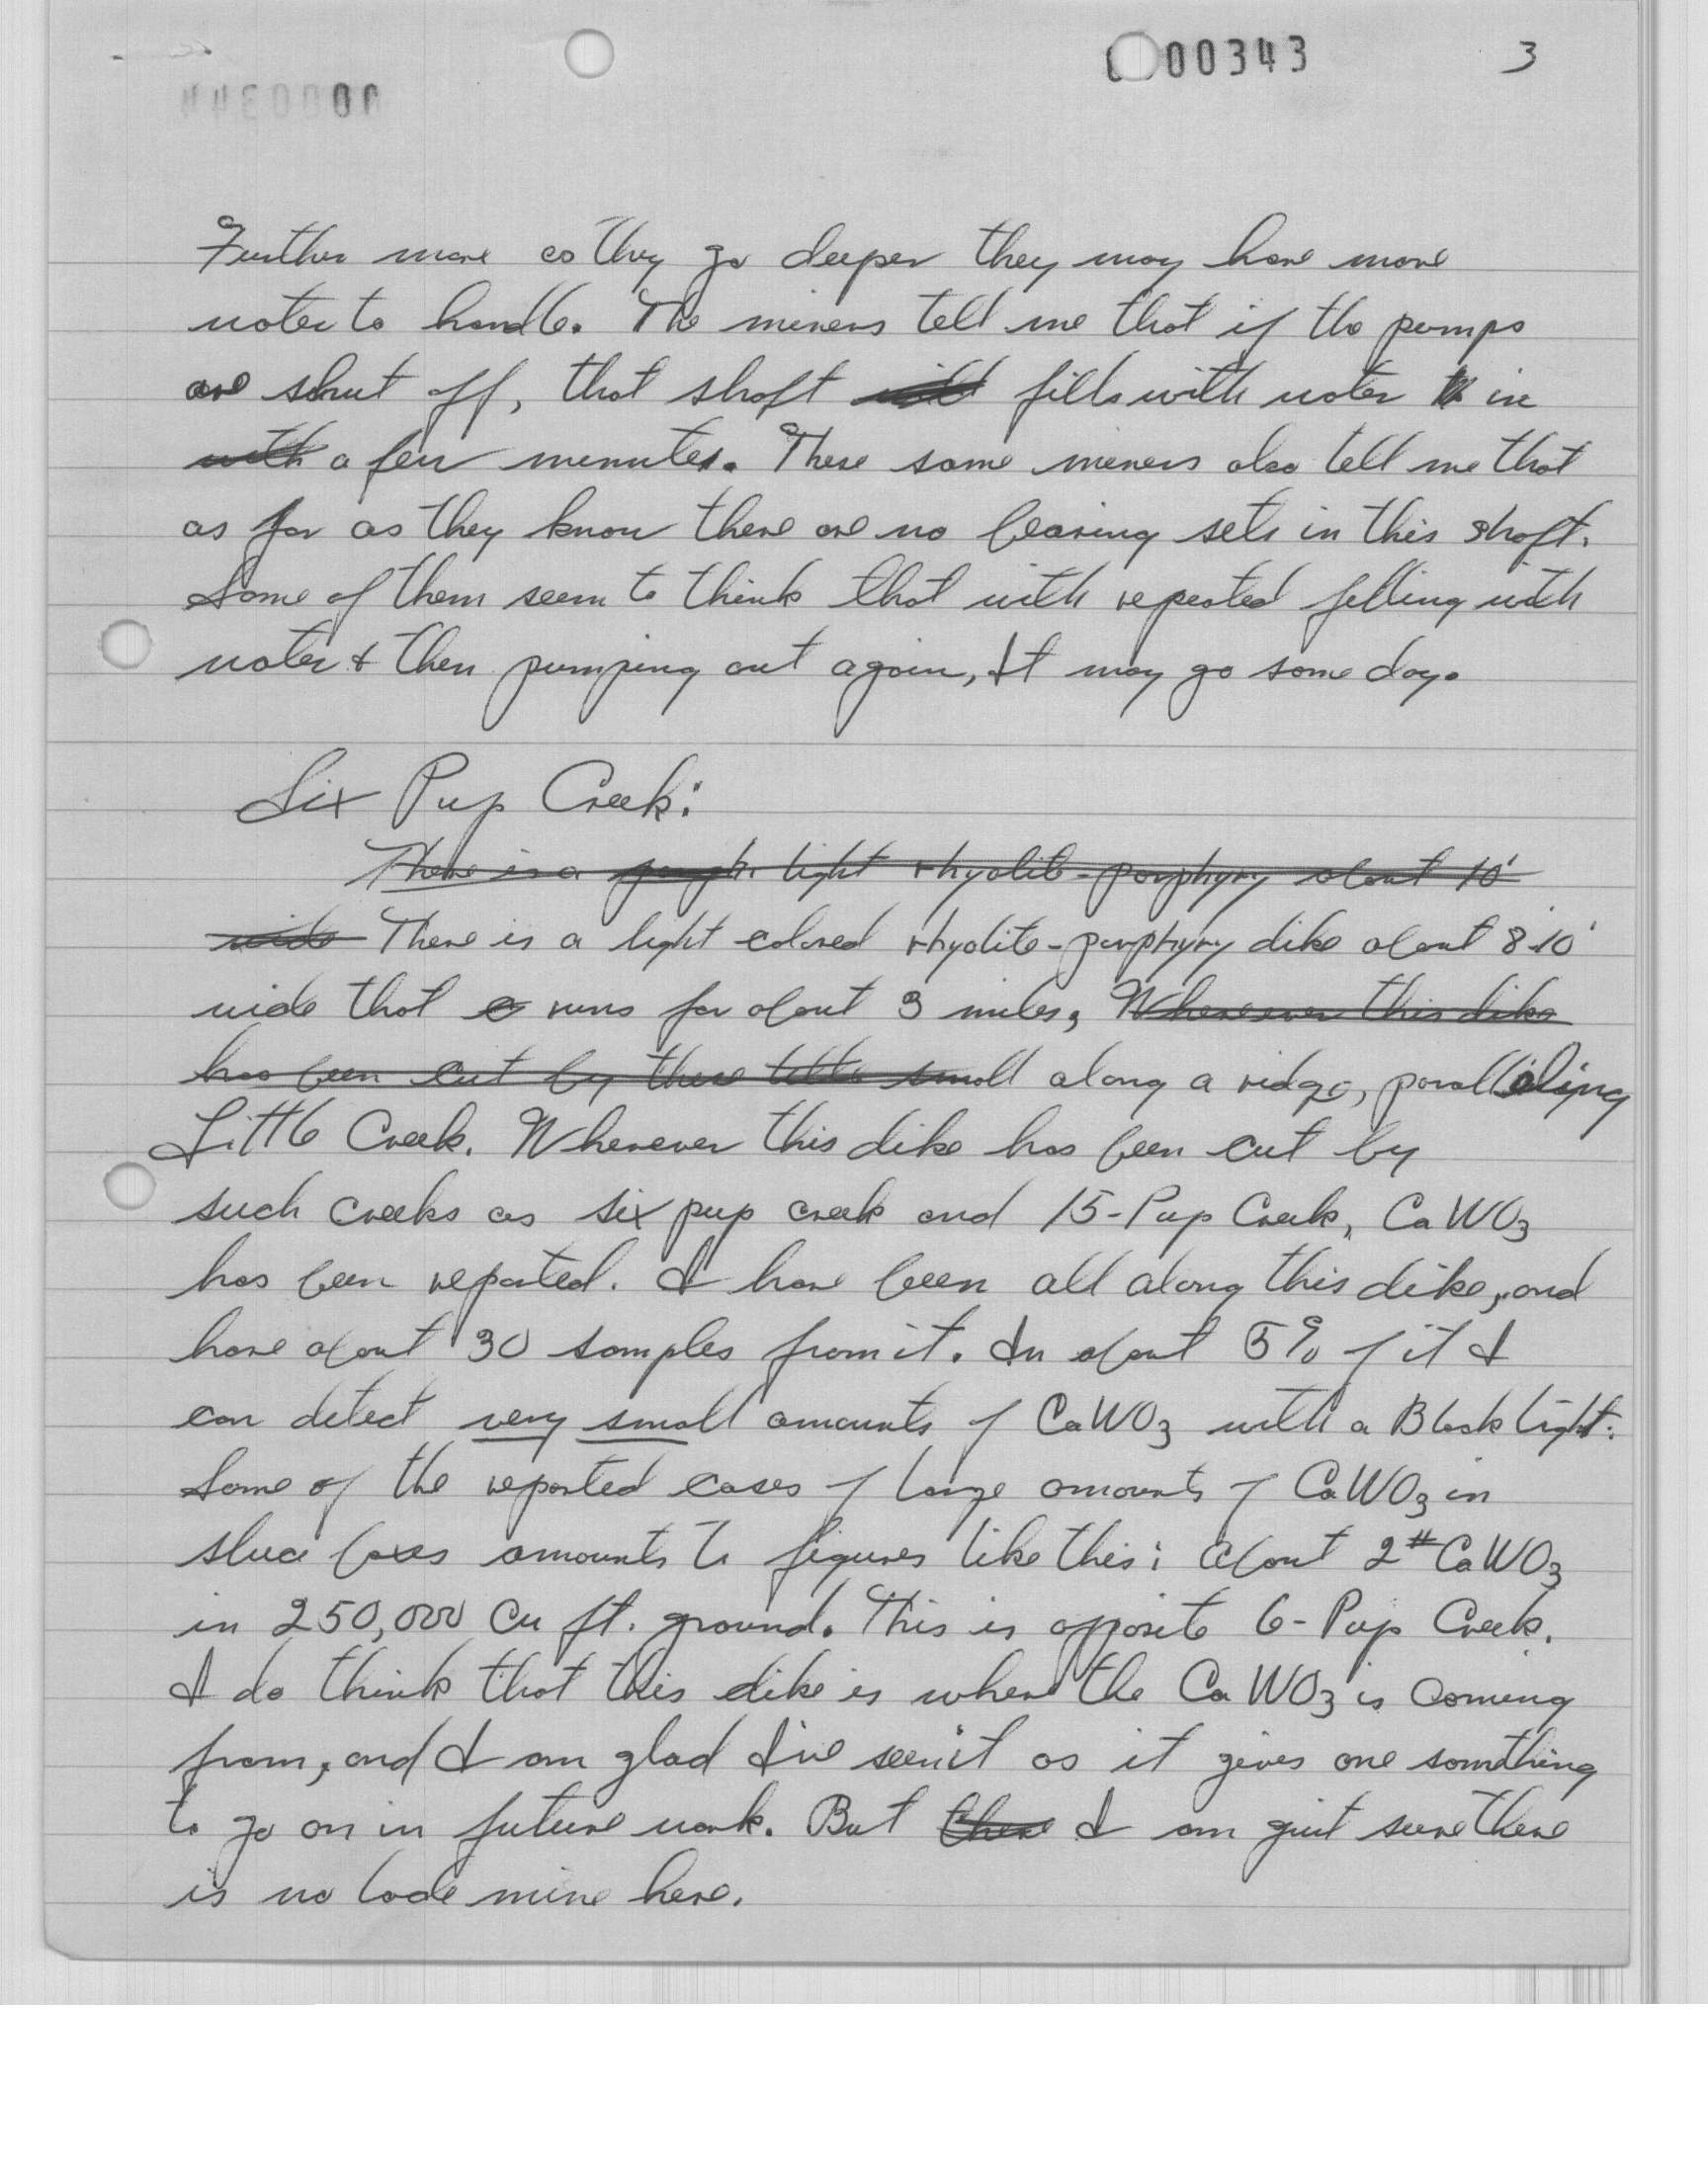 000343 3
Further more as they go deeper they may have more
water to handle. The miners tell me that if the pumps
are shut off, that shaft will fills with water in
with a few minutes. These same miners also tell me that
as far as they know there are no bearing sets in this shaft.
Some of them seem to think that with repeated filling with
water & then pumping out again, It may go some day.
Six Pup Creek:
There is a light rhyolite-porphyry about 10'
wide There is a light colored rhyolite-porphyry dike about 8-10'
wide that runs for about 3 miles, Wherever this dike
has been cut by these little small along a ridge, paralleling
Little Creek. Wherever this dike has been cut by
such creeks as six pup creek and 15-Pup Creek, CaWO3
has been reported. I have been all along this dike, and
have about 30 samples from it. In about 5% of it I
can detect very small amounts of CaWO3 with a Black light.
Some of the reported cases of large amounts of CaWO3 in
sluce boxes amounts to figures like this: About 2# CaWO3
in 250,000 Cu ft. ground. This is opposite 6-Pup Creek.
I do think that this dike is where the CaWO3 is coming
from, and I am glad I've seen it as it gives one something
to go on in future work. But there I am quit sure there
is no lode mine here.